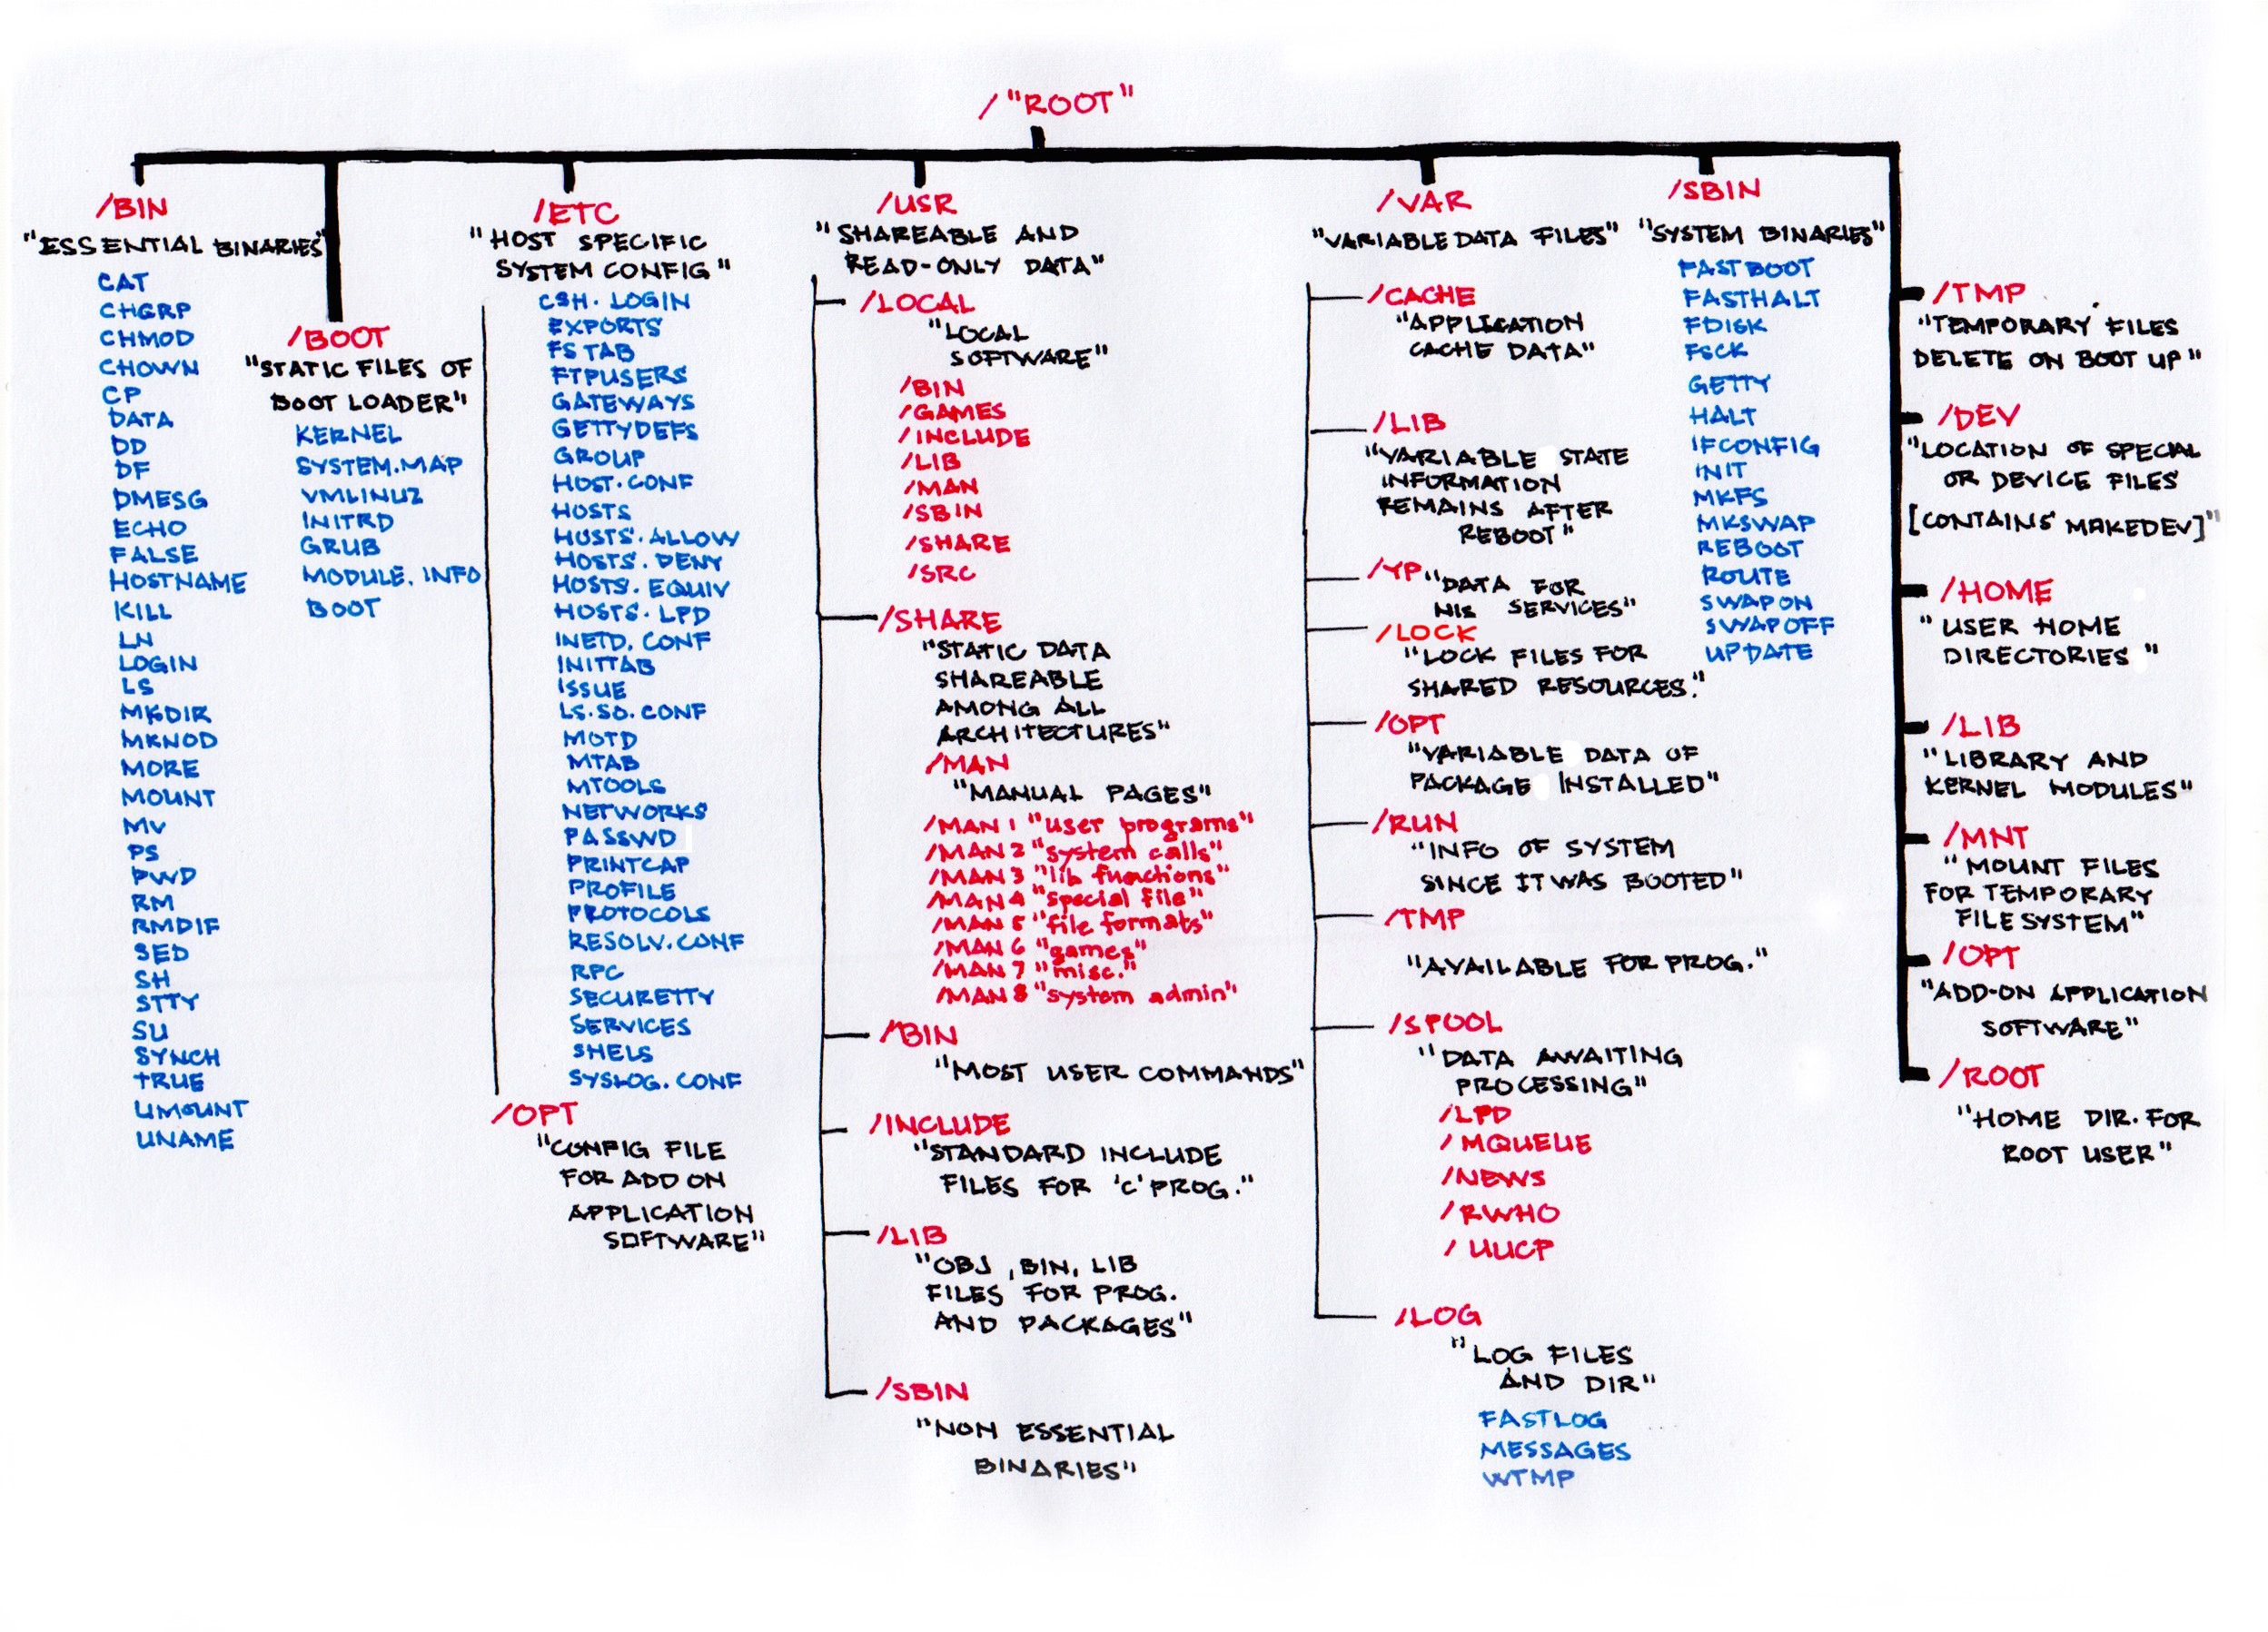 / "ROOT"
/BIN
"ESSENTIAL BINARIES"
CAT
CHGRP
CHMOD
CHOWN
CP
DATA
DD
DF
DMESG
ECHO
FALSE
HOSTNAME
KILL
LN
LOGIN
LS
MKDIR
MKNOD
MORE
MOUNT
MV
PS
PWD
RM
RMDIF
SED
SH
STTY
SU
SYNCH
TRUE
UMOUNT
UNAME
/BOOT
"STATIC FILES OF
BOOT LOADER"
KERNEL
SYSTEM.MAP
VMLINUZ
INITRD
GRUB
MODULE.INFO
BOOT
/ETC
"HOST SPECIFIC
SYSTEM CONFIG"
CSH.LOGIN
EXPORTS
FSTAB
FTPUSERS
GATEWAYS
GETTYDEFS
GROUP
HOST.CONF
HOSTS
HOSTS.ALLOW
HOSTS.DENY
HOSTS.EQUIV
HOSTS.LPD
INETD.CONF
INITTAB
ISSUE
LS.SO.CONF
MOTD
MTAB
MTOOLS
NETWORKS
PASSWD
PRINTCAP
PROFILE
PROTOCOLS
RESOLV.CONF
RPC
SECURETTY
SERVICES
SHELS
SYSLOG.CONF
/OPT
"CONFIG FILE
FOR ADD ON
APPLICATION
SOFTWARE"
/USR
"SHAREABLE AND
READ-ONLY DATA"
/LOCAL
"LOCAL
SOFTWARE"
/BIN
/GAMES
/INCLUDE
/LIB
/MAN
/SBIN
/SHARE
/SRC
/SHARE
"STATIC DATA
SHAREABLE
AMONG ALL
ARCHITECTURES"
/MAN
"MANUAL PAGES"
/MAN 1 "user programs"
/MAN 2 "system calls"
/MAN 3 "lib functions"
/MAN 4 "special file"
/MAN 5 "file formats"
/MAN 6 "games"
/MAN 7 "misc."
/MAN 8 "system admin"
/BIN
"MOST USER COMMANDS"
/INCLUDE
"STANDARD INCLUDE
FILES FOR 'C' PROG."
/LIB
"OBJ, BIN, LIB
FILES FOR PROG.
AND PACKAGES"
/SBIN
"NON ESSENTIAL
BINARIES"
/VAR
"VARIABLE DATA FILES"
/CACHE
"APPLICATION
CACHE DATA"
/LIB
"VARIABLE STATE
INFORMATION
REMAINS AFTER
REBOOT"
/YP "DATA FOR
NIS SERVICES"
/LOCK
"LOCK FILES FOR
SHARED RESOURCES."
/OPT
"VARIABLE DATA OF
PACKAGE INSTALLED"
/RUN
"INFO OF SYSTEM
SINCE IT WAS BOOTED"
/TMP
"AVAILABLE FOR PROG."
/SPOOL
"DATA AWAITING
PROCESSING"
/LPD
/MQUEUE
/NEWS
/RWHO
/UUCP
/LOG
"LOG FILES
AND DIR"
FASTLOG
MESSAGES
WTMP
/SBIN
"SYSTEM BINARIES"
FASTBOOT
FASTHALT
FDISK
FSCK
GETTY
HALT
IFCONFIG
INIT
MKFS
MKSWAP
REBOOT
ROUTE
SWAPON
SWAPOFF
UPDATE
/TMP
"TEMPORARY FILES
DELETE ON BOOT UP"
/DEV
"LOCATION OF SPECIAL
OR DEVICE FILES
[CONTAINS MAKEDEV]"
/HOME
"USER HOME
DIRECTORIES"
/LIB
"LIBRARY AND
KERNEL MODULES"
/MNT
"MOUNT FILES
FOR TEMPORARY
FILESYSTEM"
/OPT
"ADD-ON APPLICATION
SOFTWARE"
/ROOT
"HOME DIR. FOR
ROOT USER"